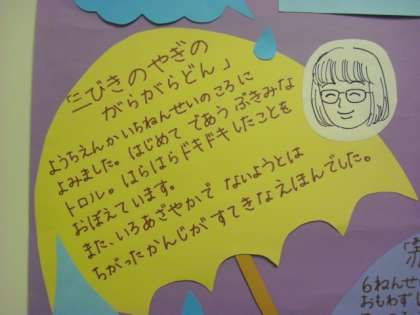 「三びきのやぎの
がらがらどん」
ようちえんかいちねんせいのころに
よみました。はじめて であう ぶきみな
トロル。はらはらドキドキしたことを
おぼえています。
また、いろあざやかで ないようとは
ちがったかんじがすてきなえほんでした。
6ねんせ
おもわず